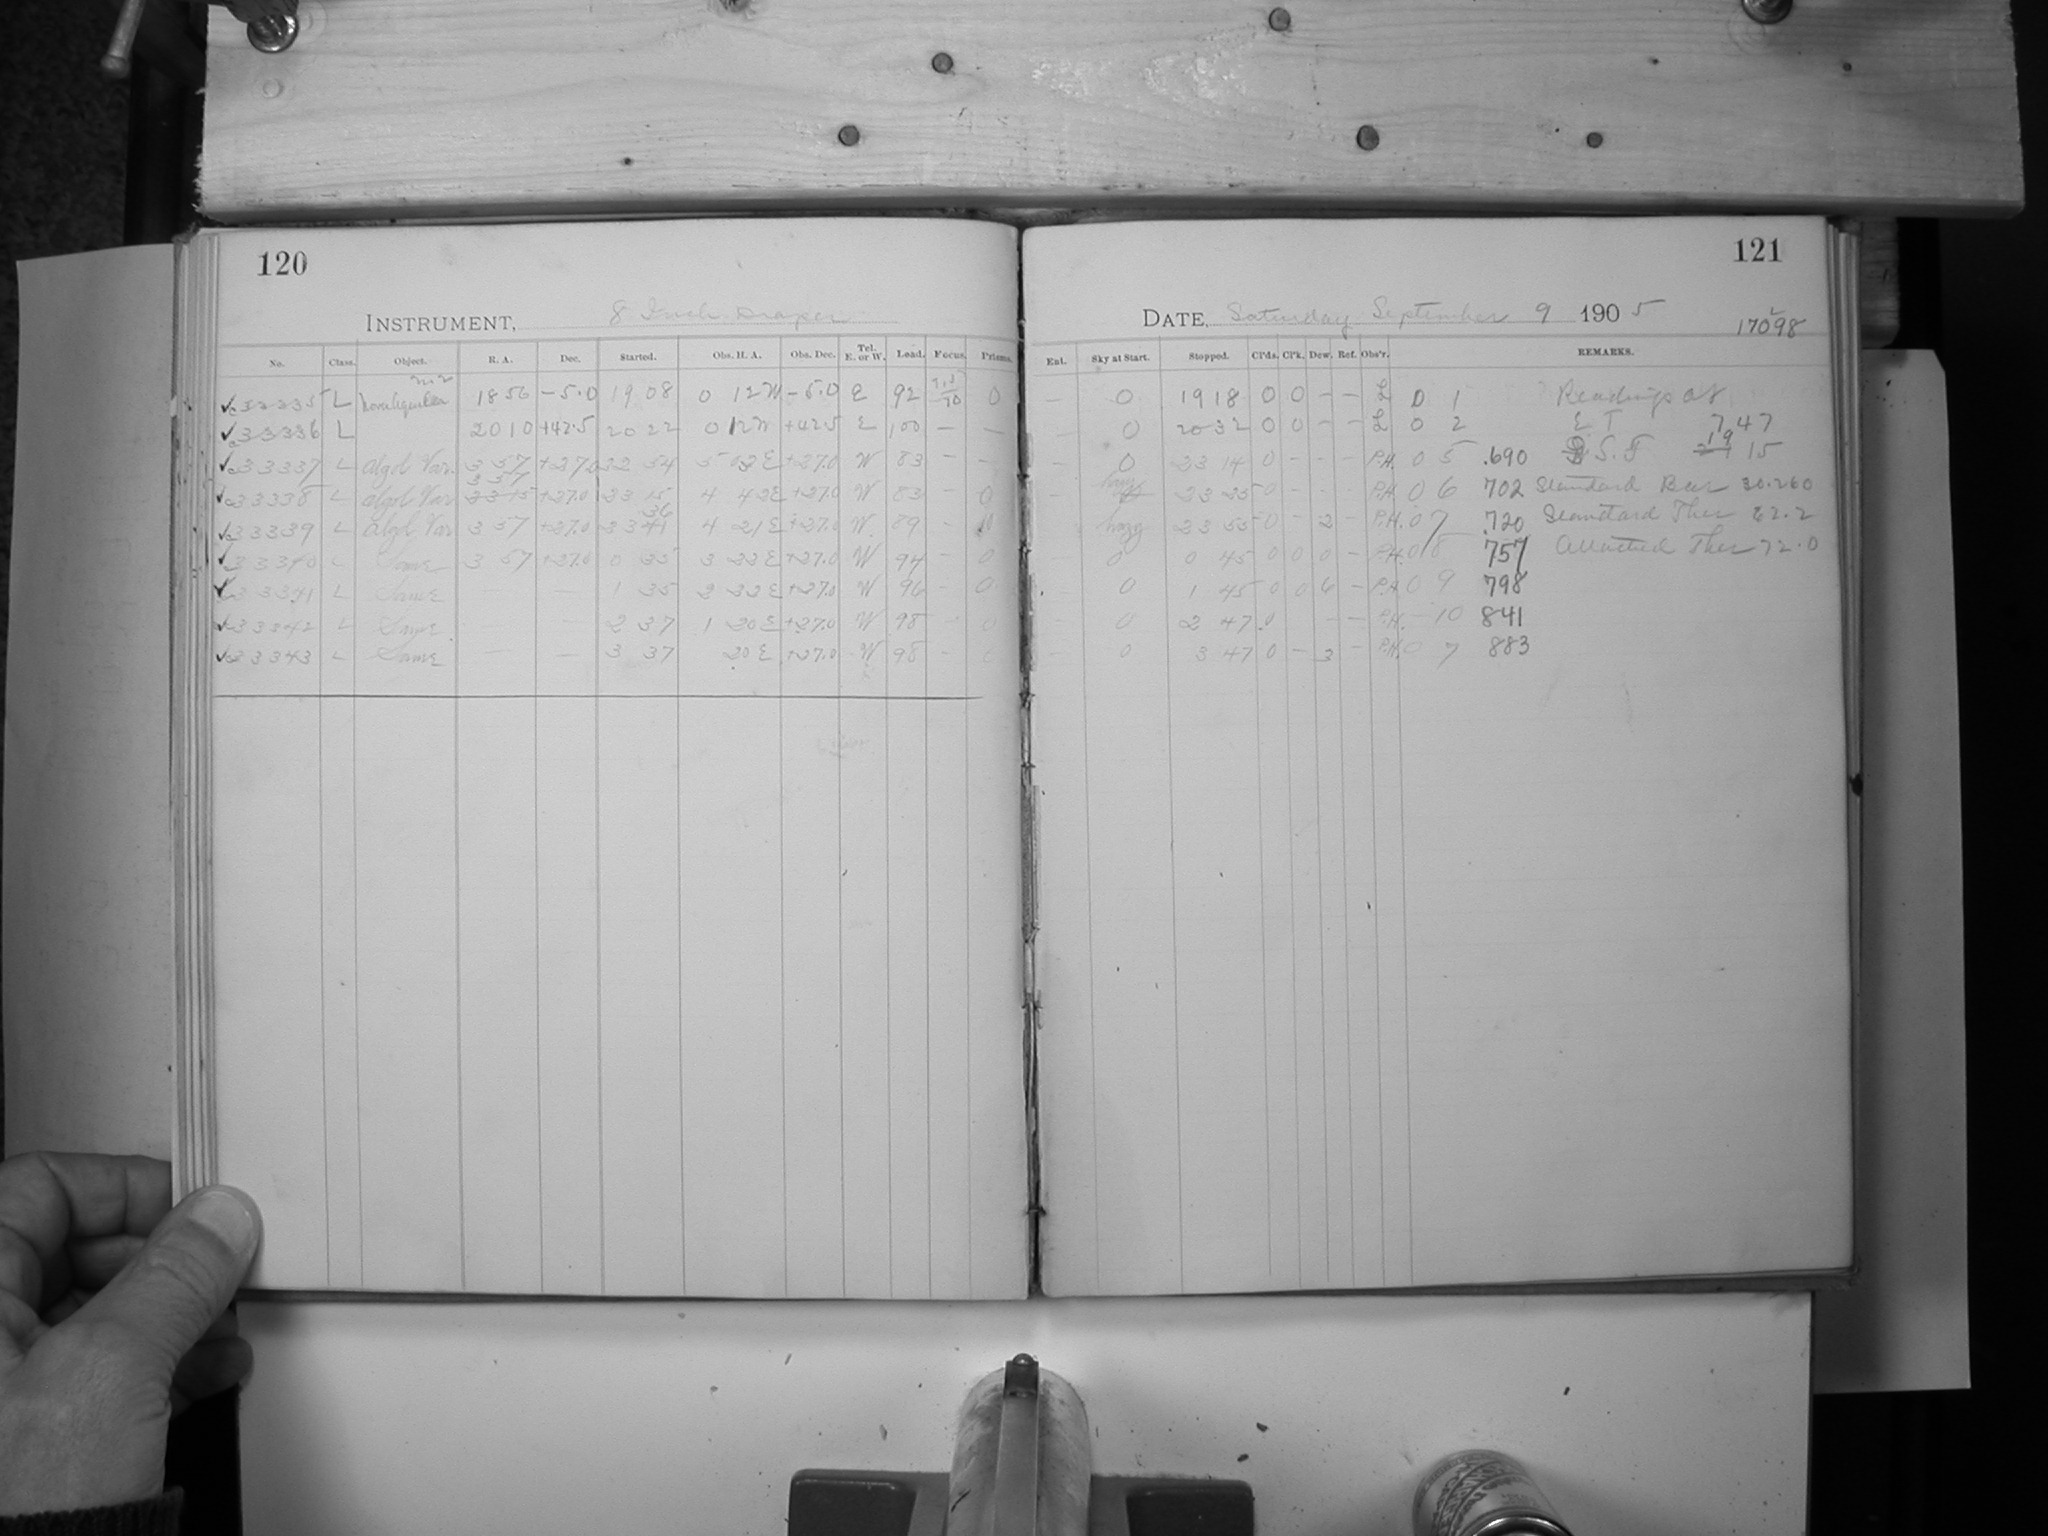 120
INSTRUMENT, 8 Inch Draper
No. Class. Object. R. A. Dec. Started. Obs. H. A. Obs. Dec. Tel. E. or W. Load. Focus. Prisms.
33335 L Nova Aquilae 18 56 -5.0 19 08 0 12W -5.0 E 92 0
33336 L 20 10 +42.5 20 22 0 12W +42.5 E 100 — —
33337 L Algol Var. 3 57 +27.0 22 54 5 02E +27.0 W 83 — —
33338 L Algol Var 3 57 +27.0 23 15 4 42E +27.0 W 83 — 0
33339 L Algol Var 3 57 +27.0 23 36 4 21E +27.0 W 89 - 0
33340 L Same 3 57 +27.0 0 35 3 22E +27.0 W 94 — 0
33341 L Same — 1 35 2 22E +27.0 W 96 - 0
33342 L Same — 2 37 1 20E +27.0 W 98 - 0
33343 L Same — — 3 37 20E +27.0 W 98 -
121
DATE, Saturday September 9 1905
17098
Ent. Sky at Start. Stopped. Cl'ds. Cl'k. Dew. Ref. Obs'r. REMARKS.
— 0 19 18 0 0 - - L 0 1 Readings at
— 0 20 32 0 0 - - L 0 2 E T 7 47
- 0 23 14 0 - - - P.H. 0 5 .690 S.T 19 15
- hazy 23 25 0 - - - P.H. 0 6 702 Standard Bar 30.260
- hazy 23 55 0 - 2 - P.H. 0 7 .720 Standard Ther 62.2
0 0 45 0 0 0 - P.H. 0 8 757 Attached Ther 72.0
0 1 45 0 0 6 - P.H. 0 9 798
0 2 47 0 - - P.H. - 10 841
— 0 3 47 0 - 3 - P.H. 0 7 883